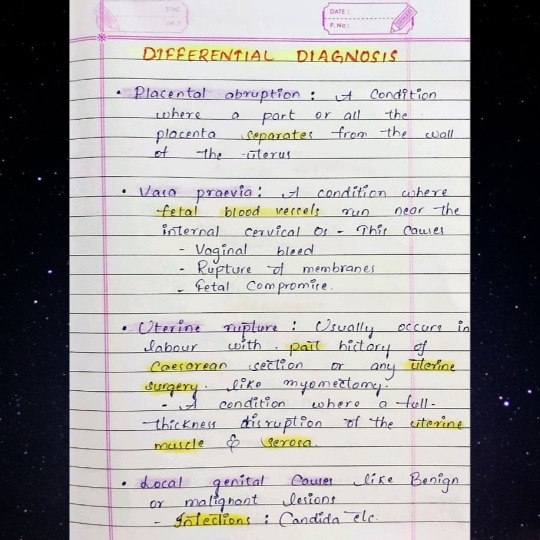 DATE :
P. No :
DIFFERENTIAL DIAGNOSIS
• Placental abruption : A Condition
where a part or all the
placenta separates from the wall
of the uterus
• Vasa praevia : A condition where
fetal blood vessels run near the
internal cervical os - This causes
- Vaginal bleed
- Rupture of membranes
- Fetal Compromise.
• Uterine rupture : Usually occurs in
labour with past history of
Caesarean section or any uterine
surgery like myomectomy.
- A condition where a full-
thickness disruption of the uterine
muscle & serosa.
• Local genital Causes like Benign
or malignant lesions
- Infections : Candida etc.